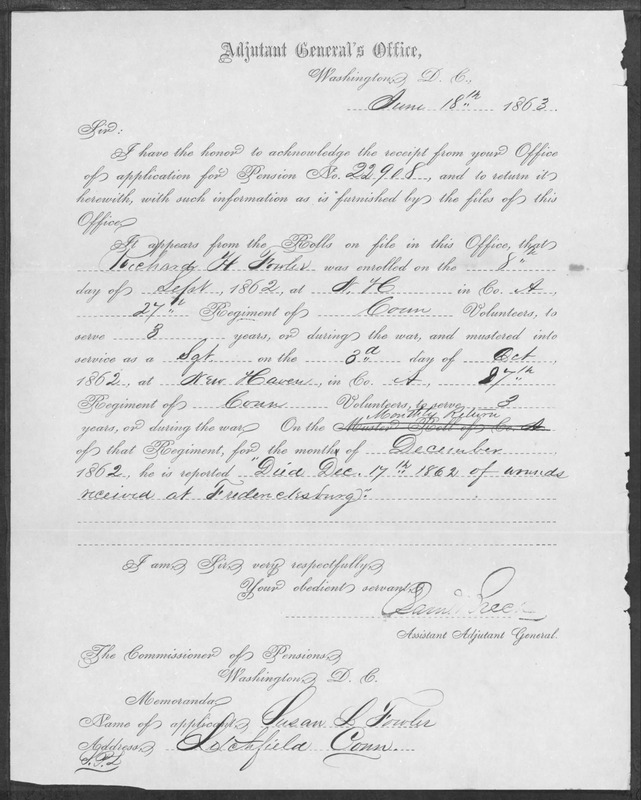 Adjutant General's Office,
Washington, D. C.,
June 18th 1863.
Sir:
I have the honor to acknowledge the receipt from your Office
of application for Pension No. 22908, and to return it
herewith, with such information as is furnished by the files of this
Office.
It appears from the Rolls on file in this Office, that
Richard H Fowler was enrolled on the 8th
day of Sept, 1862, at N. H in Co. A,
27th Regiment of Conn Volunteers, to
serve 3 years, or during the war, and mustered into
service as a Sgt on the 3d day of Oct,
1862, at New Haven, in Co. A, 27th
Regiment of Conn Volunteers, to serve 3
Monthly Return
years, or during the war. On the Muster Roll of Co. A
of that Regiment, for the months of December
1862, he is reported "Died Dec. 17th 1862 of wounds
received at Fredericksburg".
I am, Sir, very respectfully,
Your obedient servant,
Saml Breck
Assistant Adjutant General.
The Commissioner of Pensions,
Washington, D. C.
Memoranda,
Name of applicant, Susan L Fowler
Address, Litchfield Conn.